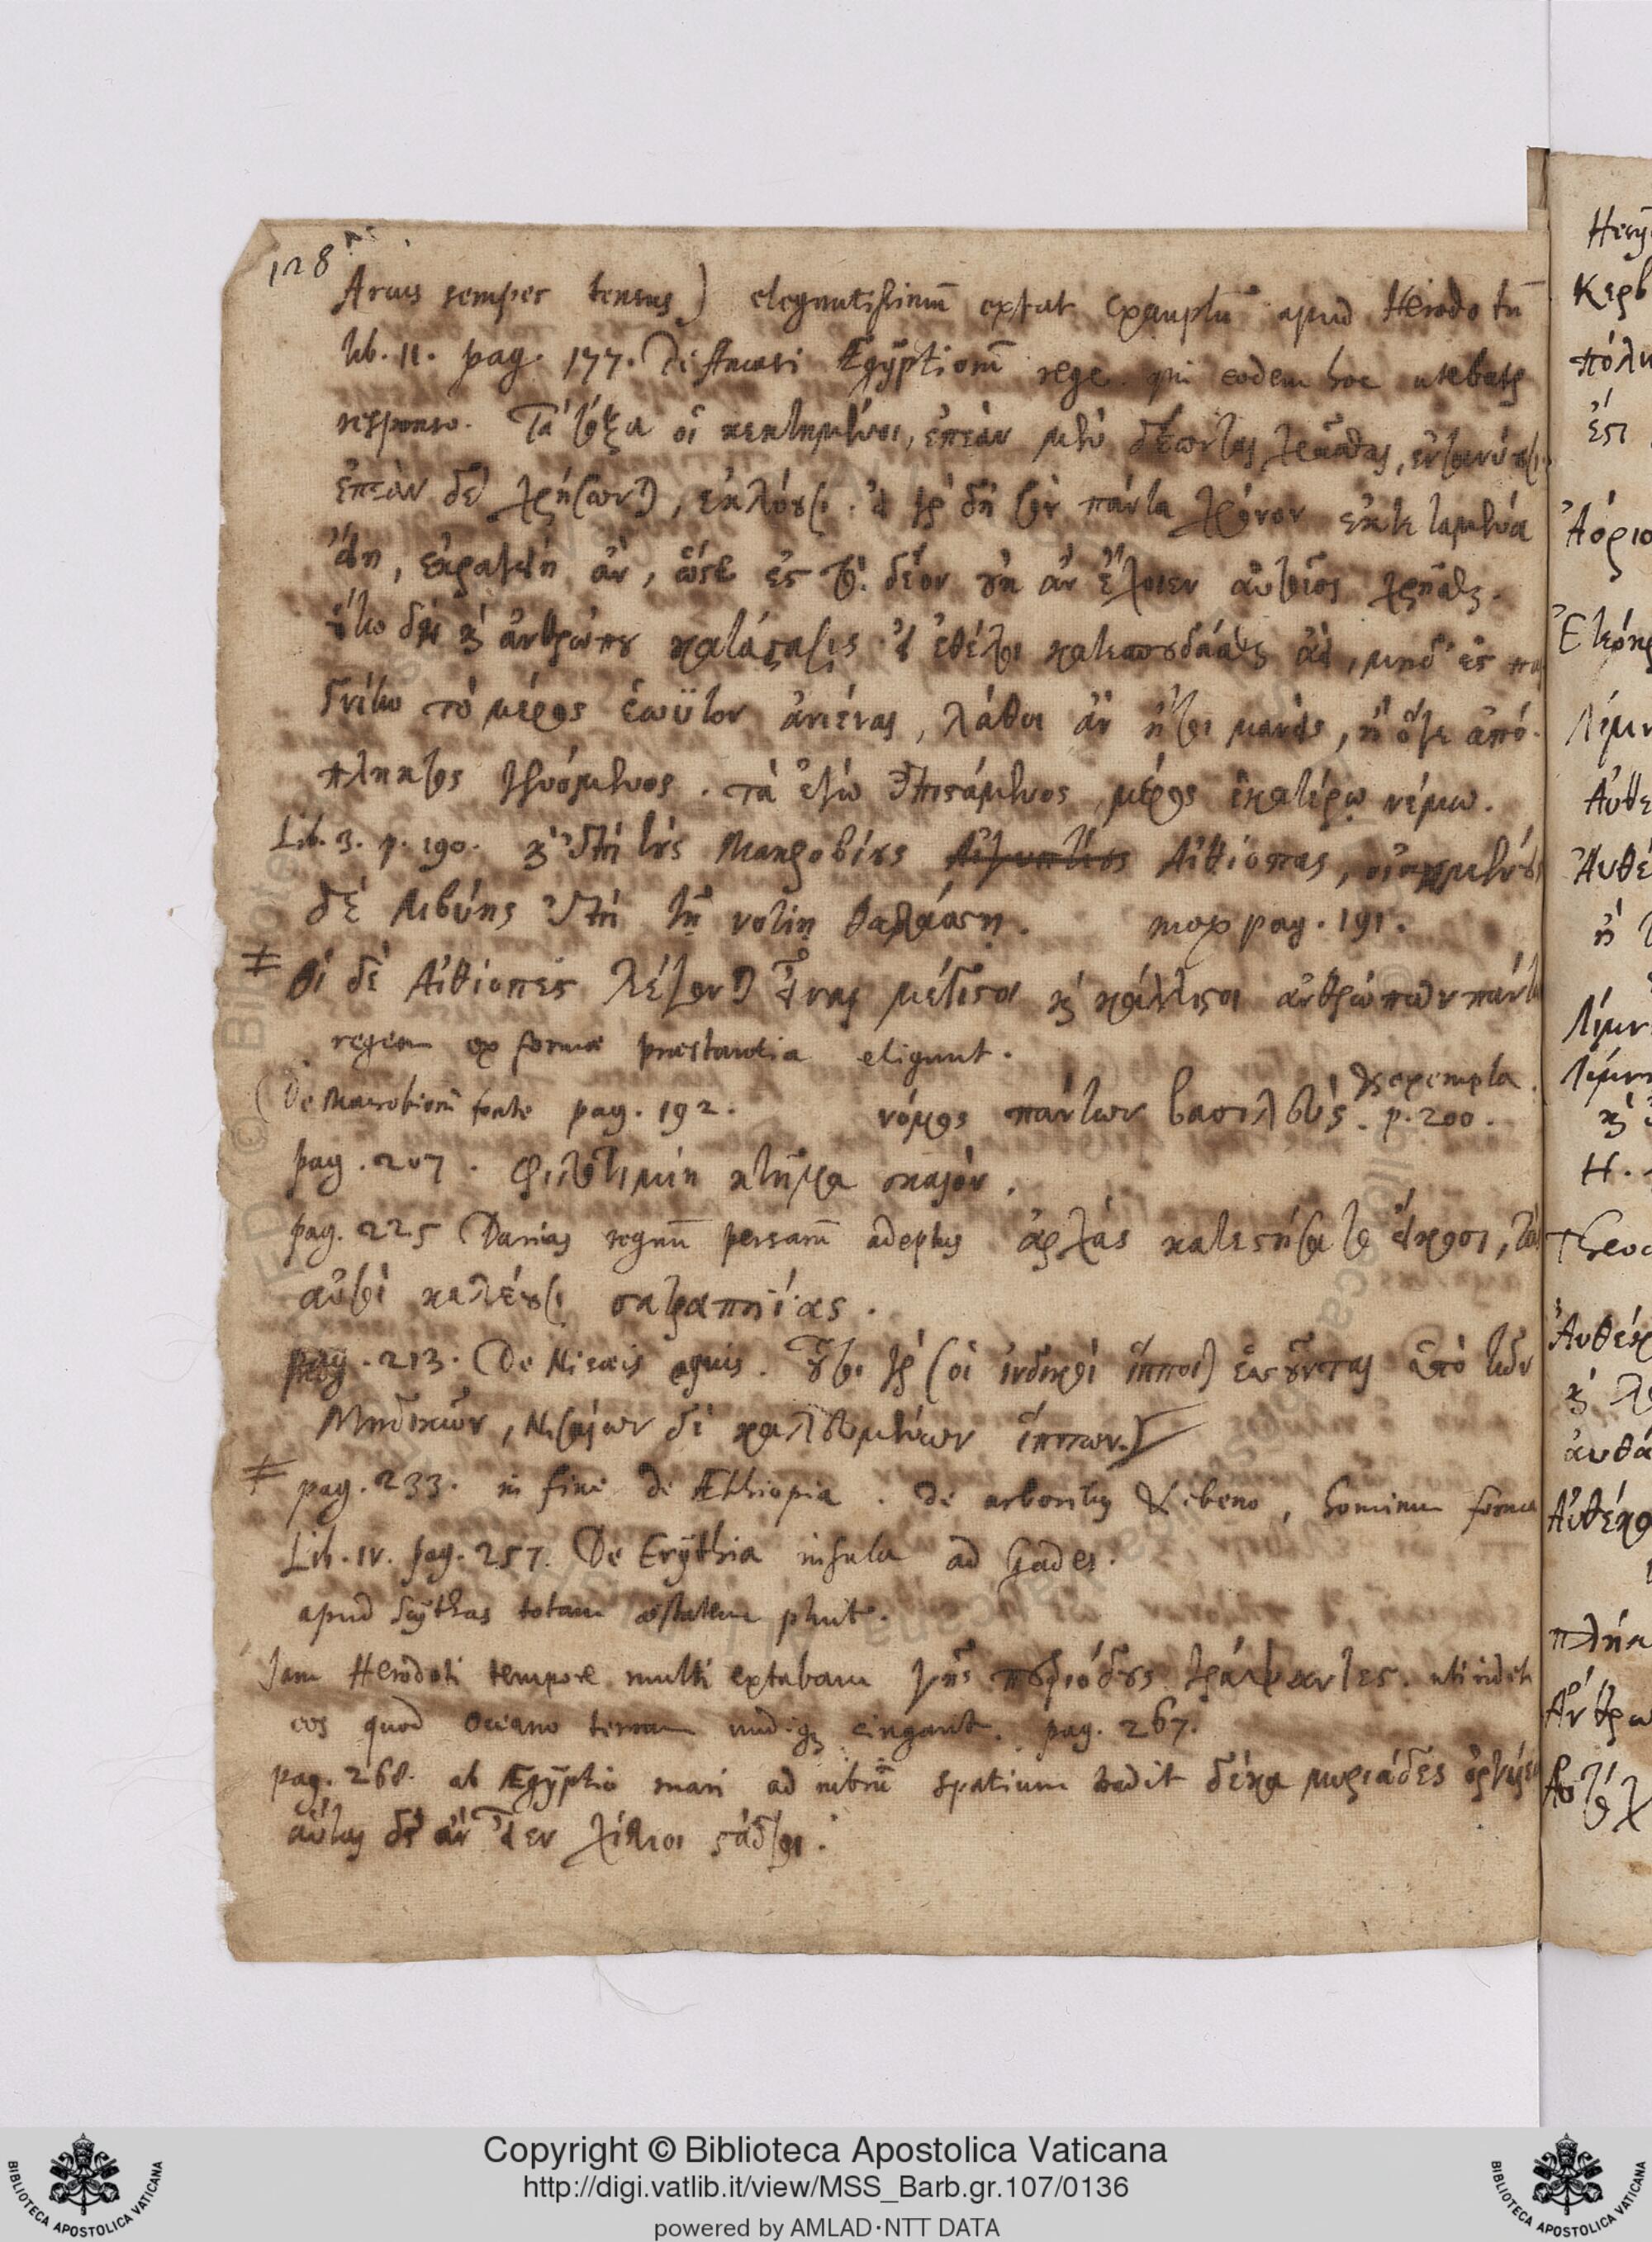 128
Arcus semper tensus) elegantissimũ extat exemplũ apud Herodotũ
lib. II. pag. 177. De Amasi Ægÿptiorũ rege qui eodem hoc utebatur
responso. Τὰ τόξα οἱ κεκτημένοι, ἐπεὰν μὲν δέωνται χρᾶσθαι, ἐντανύουσι
ἐπεὰν δὲ χρήσωνται, ἐκλύουσι. εἰ γὰρ δὴ τὸν πάντα χρόνον ἐκτεταμένα
εἴη, ἐκραγείη ἂν, ὥστε ἐς τὸ δέον οὐκ ἂν ἔχοιεν αὐτοῖσι χρῆσθαι.
οὕτω δὴ καὶ ἀνθρώπου κατάστασις· εἰ ἐθέλοι κατεσπουδάσθαι ἀεὶ, μηδ' ἐς παι
γνίην τὸ μέρος ἑωϋτὸν ἀνιέναι, λάθοι ἂν ἤτοι μανεὶς, ἢ ὅγε ἀπό-
πληκτος γενόμενος. τὰ ἐγὼ ἐπιστάμενος, μέρος ἑκατέρῳ νέμω.
Lib. 3. p. 190. καὶ ἐπὶ τοὺς Μακροβίους Αἰγυπτίους Αἰθίοπας, οἰκημένους
δὲ Λιβύης ἐπὶ τῇ νοτίῃ θαλάσσῃ. mox pag. 191.
# Οἱ δὲ Αἰθίοπες λέγονται εἶναι μέγιστοι καὶ κάλλιστοι ἀνθρώπων πάντων
regem ex formæ præstantia eligunt.
De Macrobiorũ fonte pag. 192. νόμος πάντων βασιλεὺς. p. 200.
exempla.
pag. 207. φιλοτιμίη κτῆμα σκαιόν.
pag. 225 Darius regnũ persarũ adeptus ἀρχὰς κατεστήσατο εἴκοσι, τὰς
αὐτοὶ καλέουσι σατραπηίας.
pag. 213. De Nisæis equis. οὗτοι γὰρ (οἱ ἰνδικοὶ ἵπποι) ἑσσοῦνται ὑπὸ τῶν
Μηδικῶν, Νισαίων δὲ καλευμένων ἵππων.
# pag. 233. in fine de Æthiopia. de arboribus & ebeno, hominum forma
Lib. IV. pag. 257. De Erÿthia insula ad Gades.
apud Scÿthas totam æstatem pluit.
Jam Herodoti tempore multi extabant γῆς περιόδους γράψαντες. uti ridet
eos quod Oceano terram undiq; cingant. pag. 267.
pag. 268. ab Ægÿptio mari ad rubrũ spatium tradit δέκα μυριάδες ὀργυιέων
αὗται δ' ἂν εἶεν χίλιοι στάδιοι.
Κερβ
πόλι
ἐστι
Ἀόριο
Λίμν
Ἀνθέ
Λίμν
Λίμν
Ἀνθέρ
ἀνθά
Ἀνθέρ
πλήκ
Copyright © Biblioteca Apostolica Vaticana
http://digi.vatlib.it/view/MSS_Barb.gr.107/0136
powered by AMLAD·NTT DATA
BIBLIOTECA APOSTOLICA VATICANA
BIBLIOTECA APOSTOLICA VATICANA